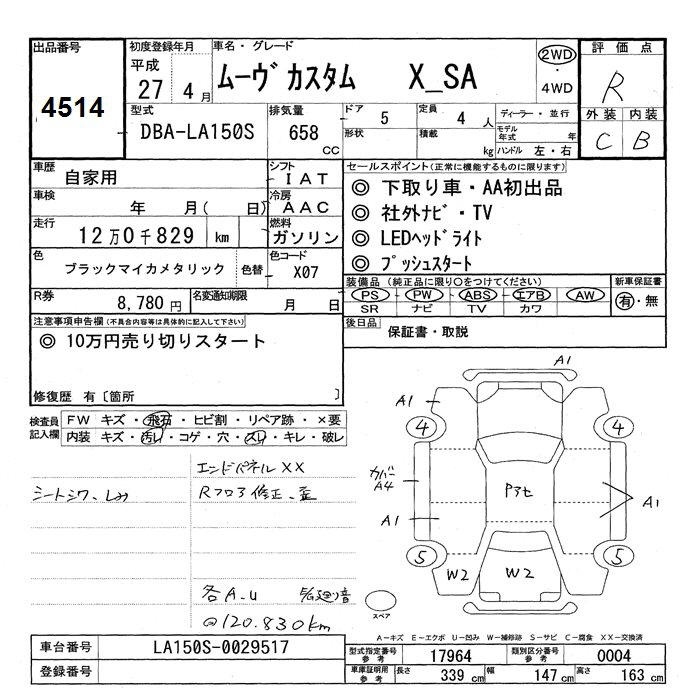 出品番号
4514
初度登録年月
平成
27 4月
車名・グレード
ムーヴ カスタム X_SA
2WD
・
4WD
評価点
R
外装 内装
C B
型式
DBA-LA150S
排気量
658
cc
ドア 5
定員 4 人
形状
積載 kg
ディーラー・並行
モデル年式 年
ハンドル 左・右
車歴
自家用
シフト
IAT
車検
年 月( 日)
冷房
AAC
走行
12万0千829 km
燃料
ガソリン
色
ブラックマイカメタリック
色替
色コード
X07
R券
8,780円
名変通知期限
月 日
セールスポイント(正常に機能するものに限ります)
◎ 下取り車・AA初出品
◎ 社外ナビ・TV
◎ LEDヘッドライト
◎ プッシュスタート
装備品(純正品に限り○をつけてください)
PS PW ABS エアB AW
SR ナビ TV カワ
新車保証書
有・無
後日品
保証書・取説
注意事項申告欄(不具合内容等は具体的に記入して下さい)
◎ 10万円売り切りスタート
修復歴 有〔箇所 〕
検査員
記入欄
FW キズ・飛石・ヒビ割・リペア跡・×要
内装 キズ・汚レ・コゲ・穴・スレ・キレ・破レ
エンドパネルXX
シートシワ、しみ
Rフロア修正、歪
各A.U
@120.830km
A1
A1
4
4
カバー
A4
Pアセ
A1
A1
5
5
W2
W2
スペア
A−キズ E−エクボ U−凹み W−補修跡 S−サビ C−腐食 XX−交換済
車台番号
LA150S-0029517
登録番号
型式指定番号
参考
17964
類別区分番号
参考
0004
車庫証明用
参考
長さ 339 cm 幅 147 cm 高さ 163 cm